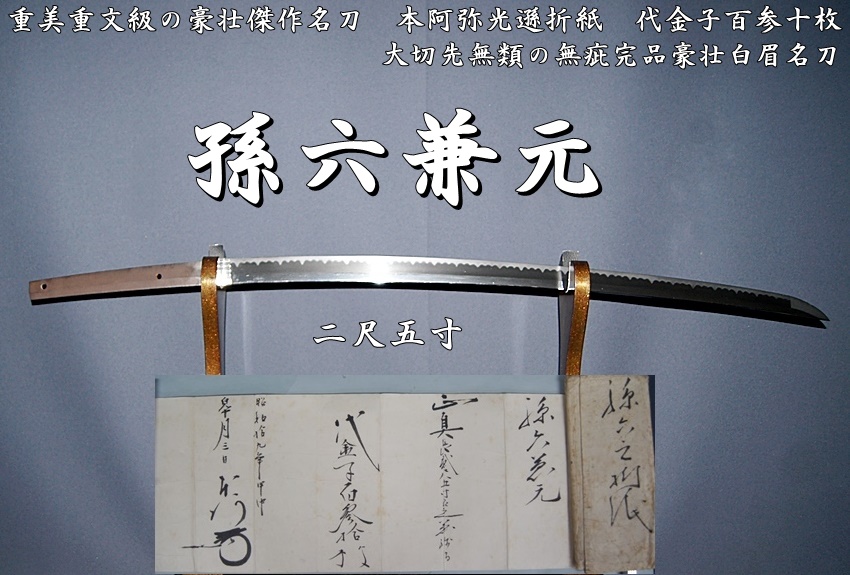 重美重文級の豪壮傑作名刀 本阿弥光遜折紙 代金子百参十枚
大切先無類の無疵完品豪壮白眉名刀
孫六兼元
二尺五寸
孫六之折紙
孫六兼元
正真
代金子百参拾枚
昭和拾九年甲申
皐月三日